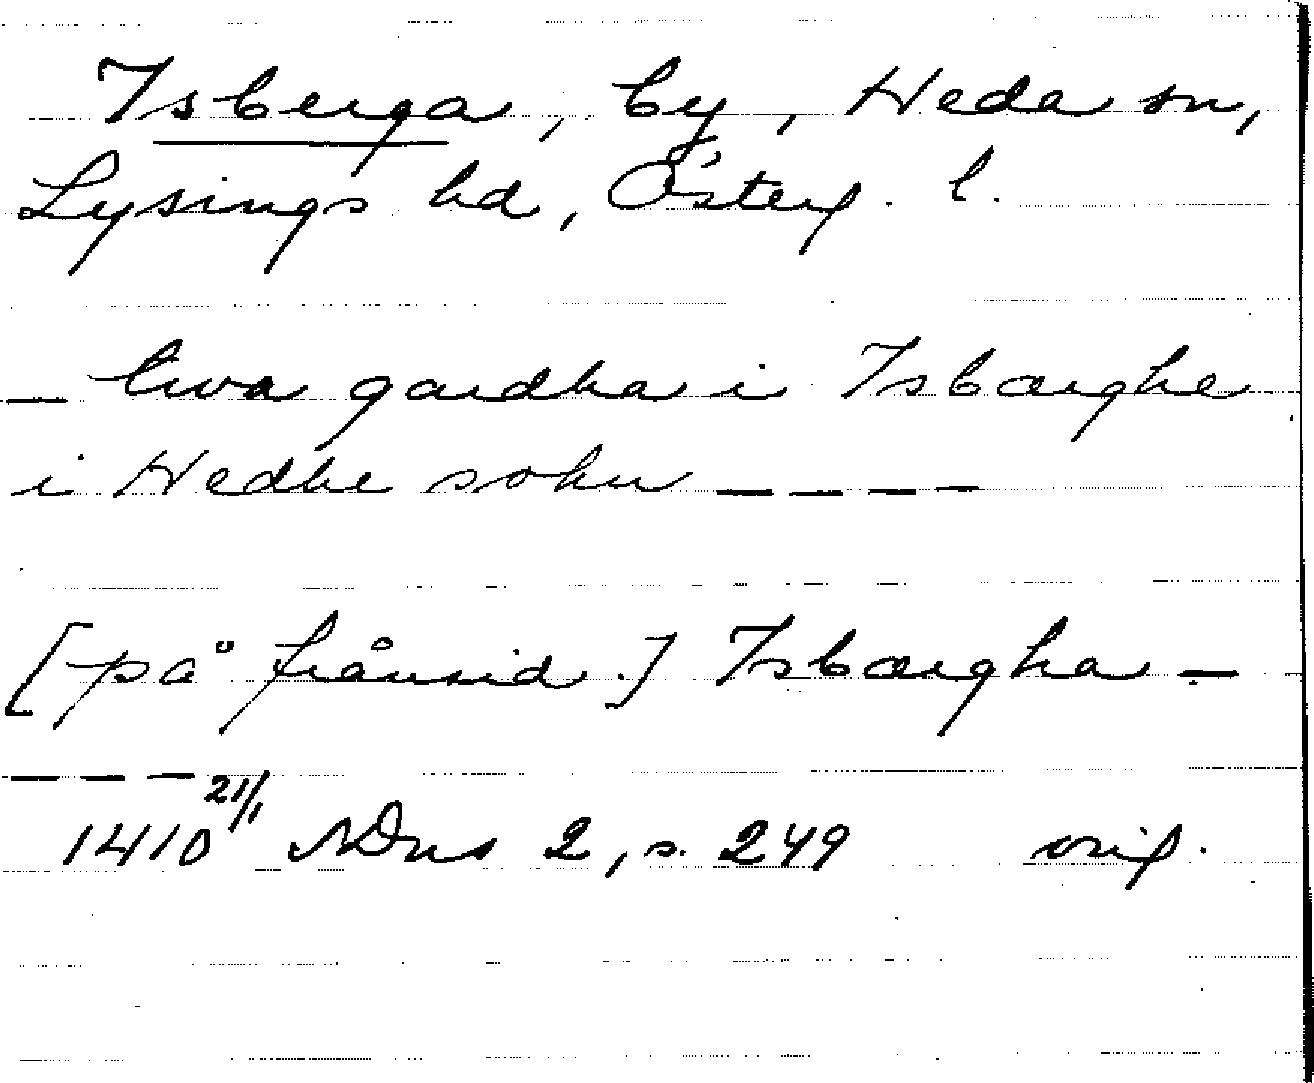 Isberga, by, Heda sn,
Lysings hd, Österg. l.
— twa gardha i Isbærghe
i Hedhe sokn — — — —
[på frånsid.] Isbærgha —
— — —
1410 21/1 SDns 2, s. 249 orig.